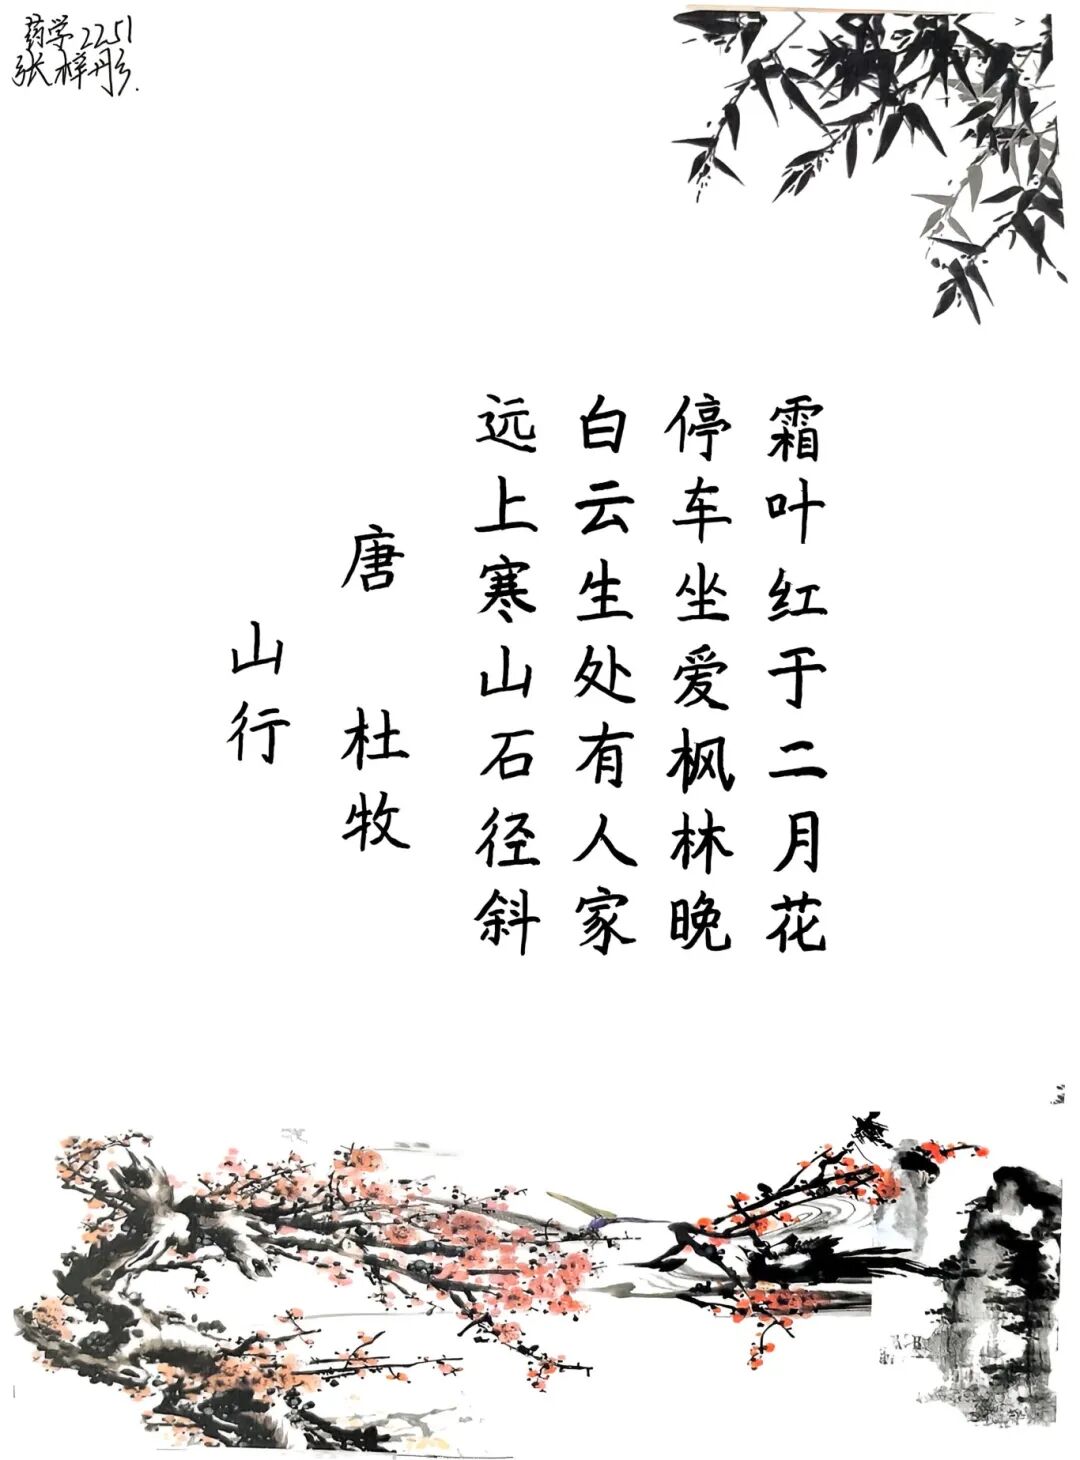 药学2251
张梓彤.
山行
唐 杜牧
远上寒山石径斜
白云生处有人家
停车坐爱枫林晚
霜叶红于二月花